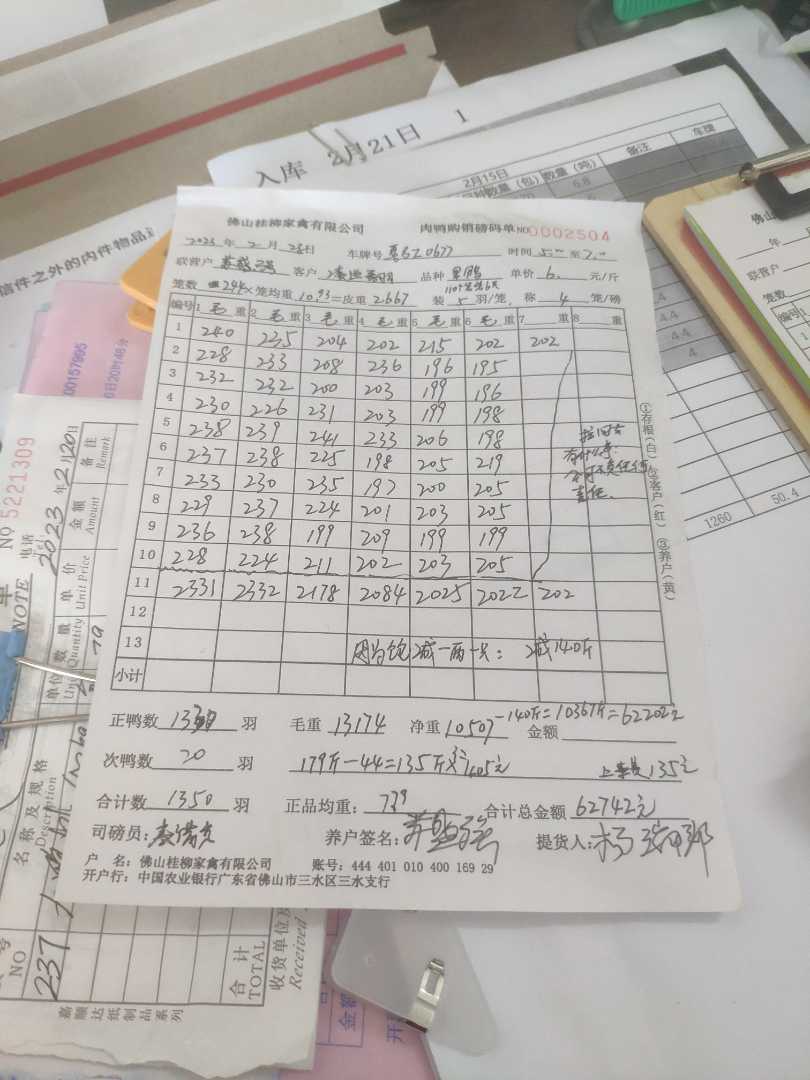 入库 2月21日 1
2月15日
数量(包) 数量(吨) 备注 车牌
6.8
信件之外的内件物品
佛山桂柳家禽有限公司 肉鸭购销磅码单 NO 0002504
2023 年 2 月 23 日 车牌号 时间 至
联营户 客户 品种 单价 6. 元/斤
笼数 244 × 笼均重 10.93 = 皮重 2667 装 5 羽/笼, 称 4 笼/磅
编号 1 毛 重 2 毛 重 3 毛 重 4 毛 重 5 毛 重 6 毛 重 7 重 8 重
1 240 235 204 202 215 202 202
2 228 233 208 236 196 195
3 232 232 200 203 199 196
4 230 226 231 203 199 198
5 238 239 241 233 206 198
6 237 238 225 198 205 219
7 233 230 235 197 200 205
8 229 237 224 201 203 205
9 236 238 199 209 199 199
10 228 224 211 202 203 205
11 2331 2332 2178 2084 2025 2022 202
12
13 因为饱 减一两一只: 减140斤
小计
①存根(白) ②客户(红) ③养户(黄)
正鸭数 1330 羽 毛重 13174 净重 10507 -140斤=10367斤=62202元
金额
次鸭数 20 羽 179斤-44=135斤×3=405元 135元
合计数 1350 羽 正品均重: 7.79 合计总金额 62742元
司磅员: 养户签名: 提货人:
户 名: 佛山桂柳家禽有限公司 账号: 444 401 010 400 169 29
开户行: 中国农业银行广东省佛山市三水区三水支行
1260 50.4
No 5221309
2023 年 2 月 20 日
电话
Tel
NOTE
备注
Remark
金额
Amount
单价
Unit Price
数量
Quantity
单位
名称及规格
Description
NO
237
合计
TOTAL
收货单位及
Received
嘉顺达纸制品系列
00157995
金额